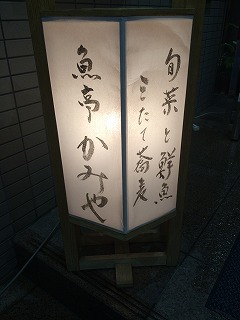 旬菜と鮮魚
三たて蕎麦
魚亭かみや